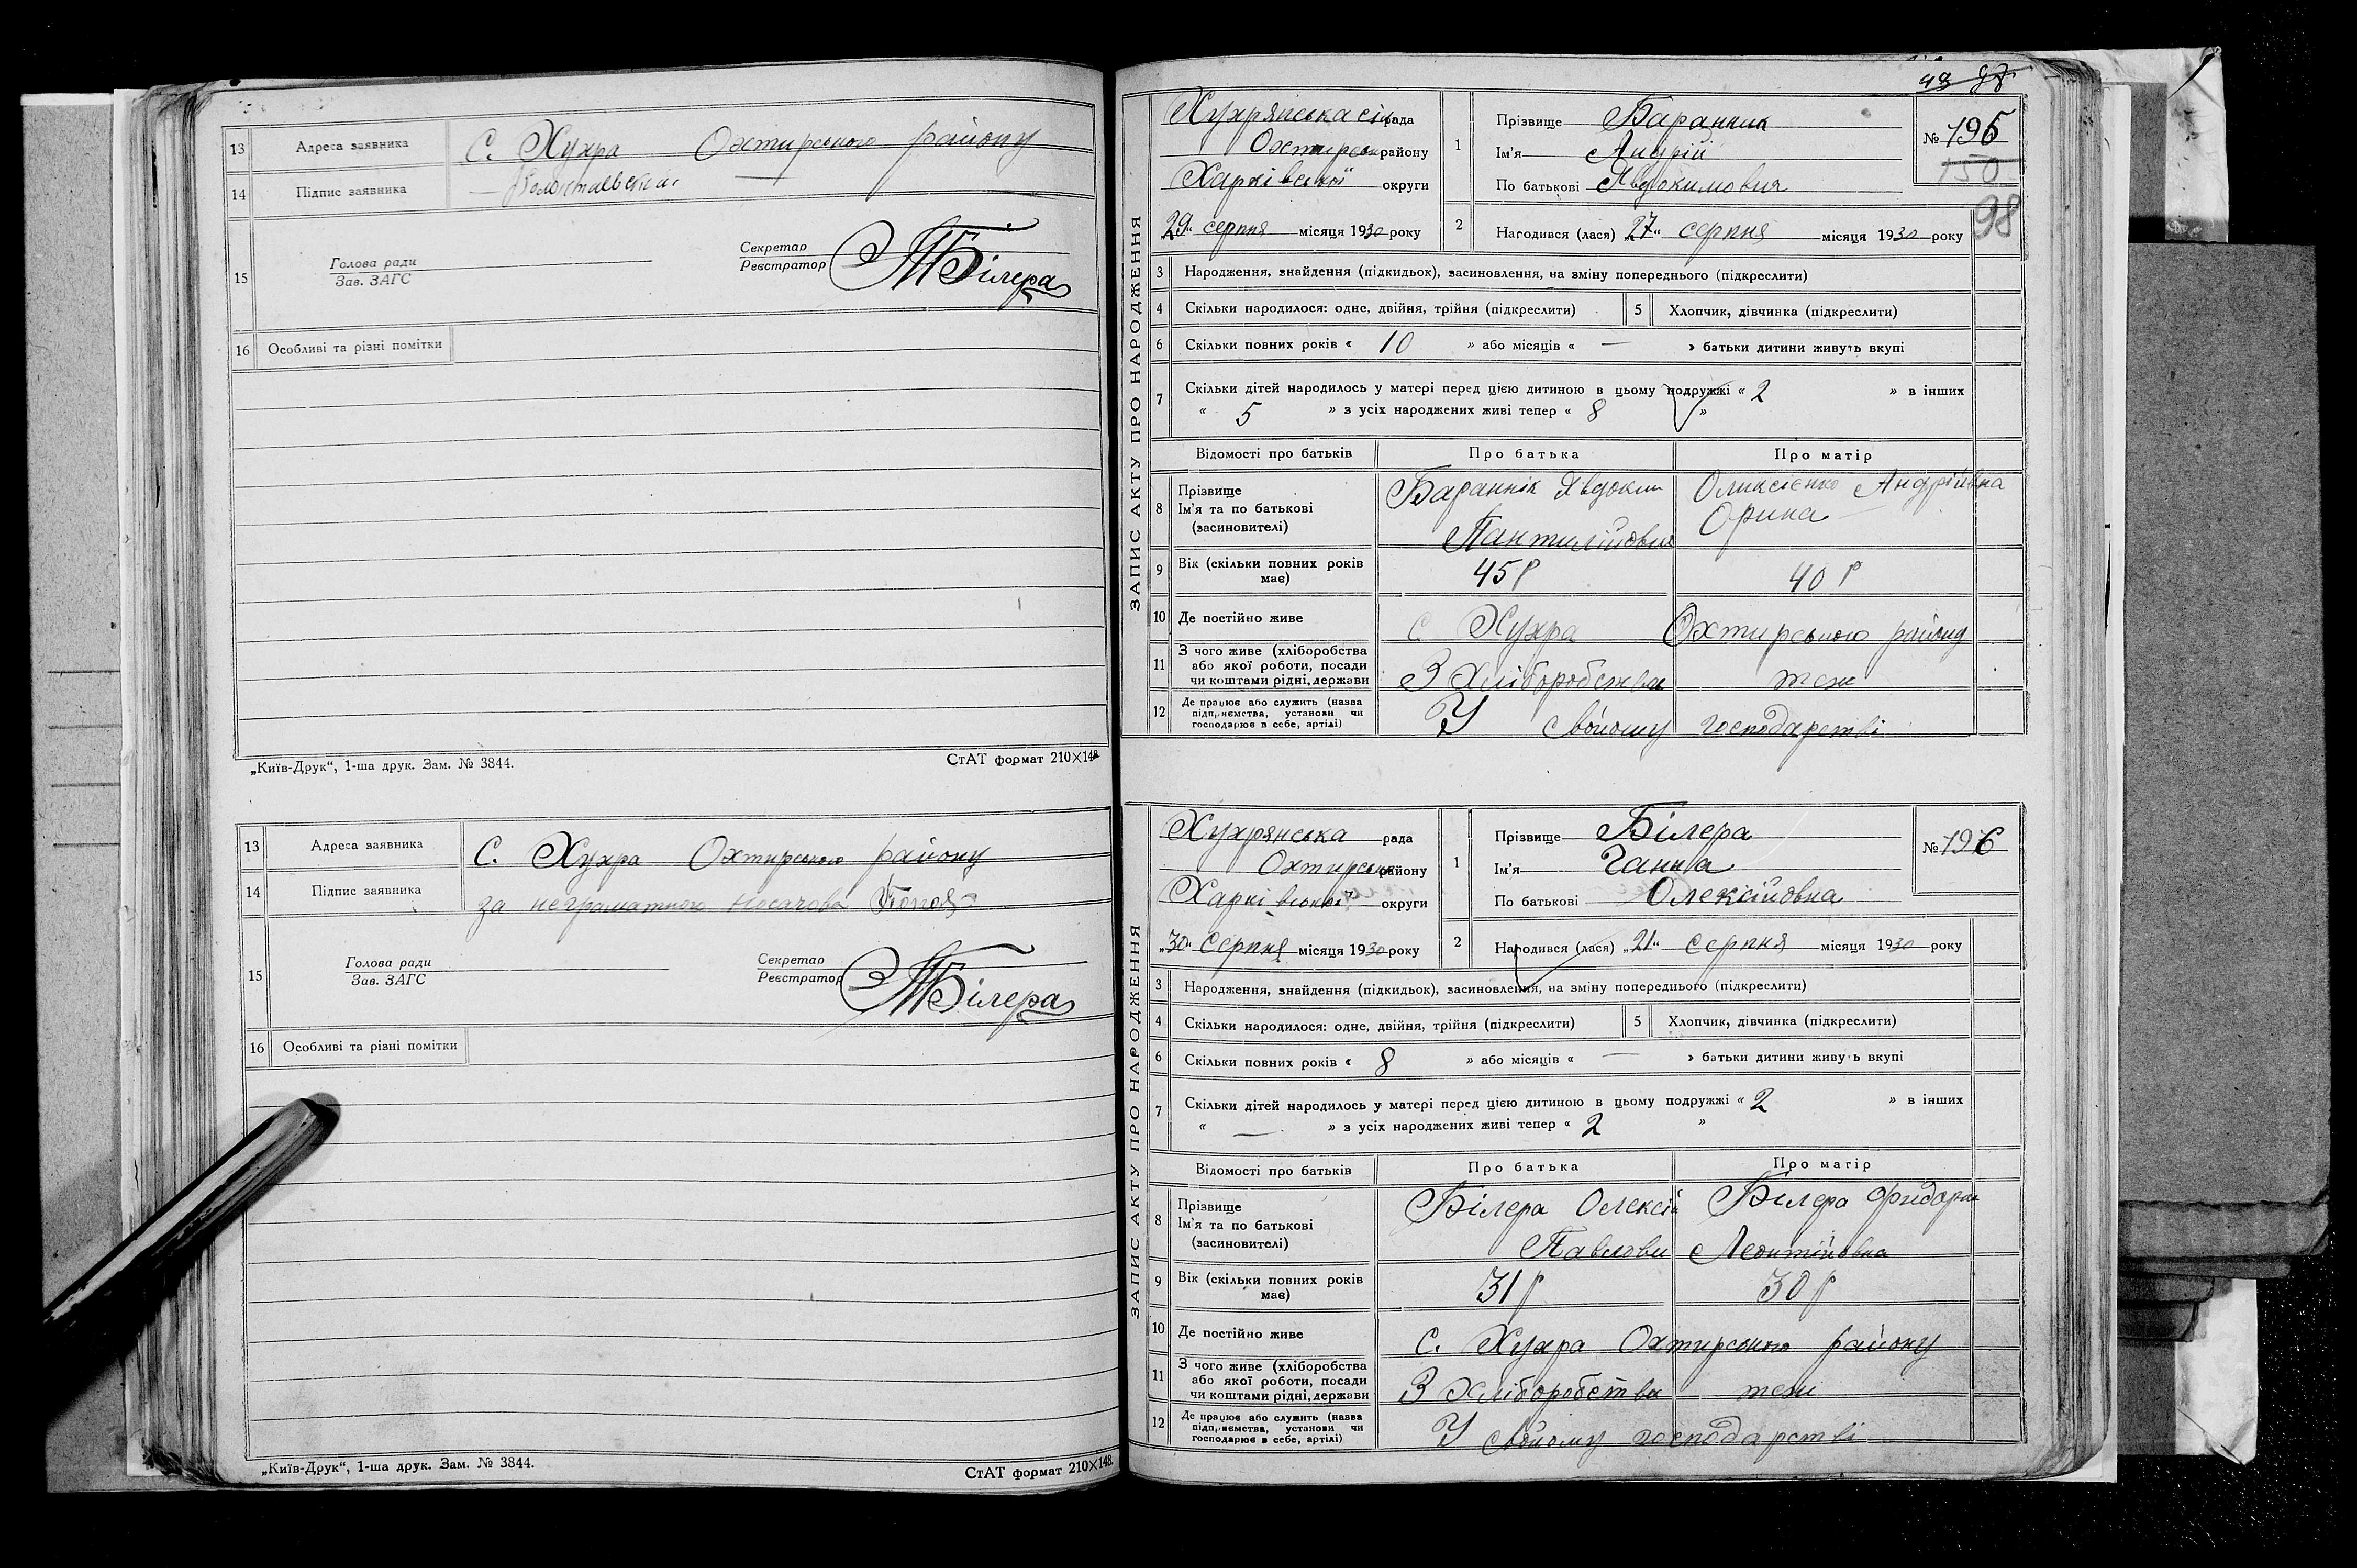 13 Адреса заявника С. Хухра Охтирського району
14 Підпис заявника
15 Голова ради
Зав. ЗАГС
Секретар
Реєстратор ТБілера
16 Особливі та різні помітки
„Київ-Друк“, 1-ша друк. Зам. № 3844.
СтАТ формат 210×148.
13 Адреса заявника С. Хухра Охтирського району
14 Підпис заявника за неграматного Носачова
15 Голова ради
Зав. ЗАГС
Секретар
Реєстратор ТБілера
16 Особливі та різні помітки
„Київ-Друк“, 1-ша друк. Зам. № 3844.
СтАТ формат 210×148.
49 97
ЗАПИС АКТУ ПРО НАРОДЖЕННЯ
Хухрянська сіл рада
Охтирськ району
Харківської округи
„29“ серпня місяця 1930 року
1 Прізвище Баранник
Ім'я Андрій
По батькові Явдокимович
№ 195
150
98
2 Народився (лася) „27“ серпня місяця 1930 року
3 Народження, знайдення (підкидьок), засиновлення, на зміну попереднього (підкреслити)
4 Скільки народилося: одне, двійня, трійня (підкреслити) 5 Хлопчик, дівчинка (підкреслити)
6 Скільки повних років « 10 » або місяців « — » батьки дитини живуть вкупі
7 Скільки дітей народилось у матері перед цією дитиною в цьому подружжі « 2 » в інших
« 5 » з усіх народжених живі тепер « 8 »
Відомості про батьків Про батька Про матір
8 Прізвище
Ім'я та по батькові
(засиновителі)
Бараннік Явдоким
Пантилійович
Оликсієнко Андріївна
Орина
9 Вік (скільки повних років має) 45 р 40 р
10 Де постійно живе с. Хухра Охтирського району
11 З чого живе (хліборобства
або якої роботи, посади
чи коштами рідні, держави З Хліборобства теж
12 Де працює або служить (назва
підприємства, установи чи
господарює в себе, артілі) У свойому господарстві
ЗАПИС АКТУ ПРО НАРОДЖЕННЯ
Хухрянська рада
Охтирськ району
Харківської округи
„30“ Серпня місяця 1930 року
1 Прізвище Білера
Ім'я Ганна
По батькові Олексійовна
№ 196
2 Народився (лася) „21“ Серпня місяця 1930 року
3 Народження, знайдення (підкидьок), засиновлення, на зміну попереднього (підкреслити)
4 Скільки народилося: одне, двійня, трійня (підкреслити) 5 Хлопчик, дівчинка (підкреслити)
6 Скільки повних років « 8 » або місяців « — » батьки дитини живуть вкупі
7 Скільки дітей народилось у матері перед цією дитиною в цьому подружжі « 2 » в інших
« — » з усіх народжених живі тепер « 2 »
Відомості про батьків Про батька Про матір
8 Прізвище
Ім'я та по батькові
(засиновителі)
Білера Олексій
Павлови
Білера Фидора
Леонтійовна
9 Вік (скільки повних років має) 31 р 30 р
10 Де постійно живе С. Хухра Охтирського району
11 З чого живе (хліборобства
або якої роботи, посади
чи коштами рідні, держави З Хліборобства теж
12 Де працює або служить (назва
підприємства, установи чи
господарює в себе, артілі) У свойому господарстві